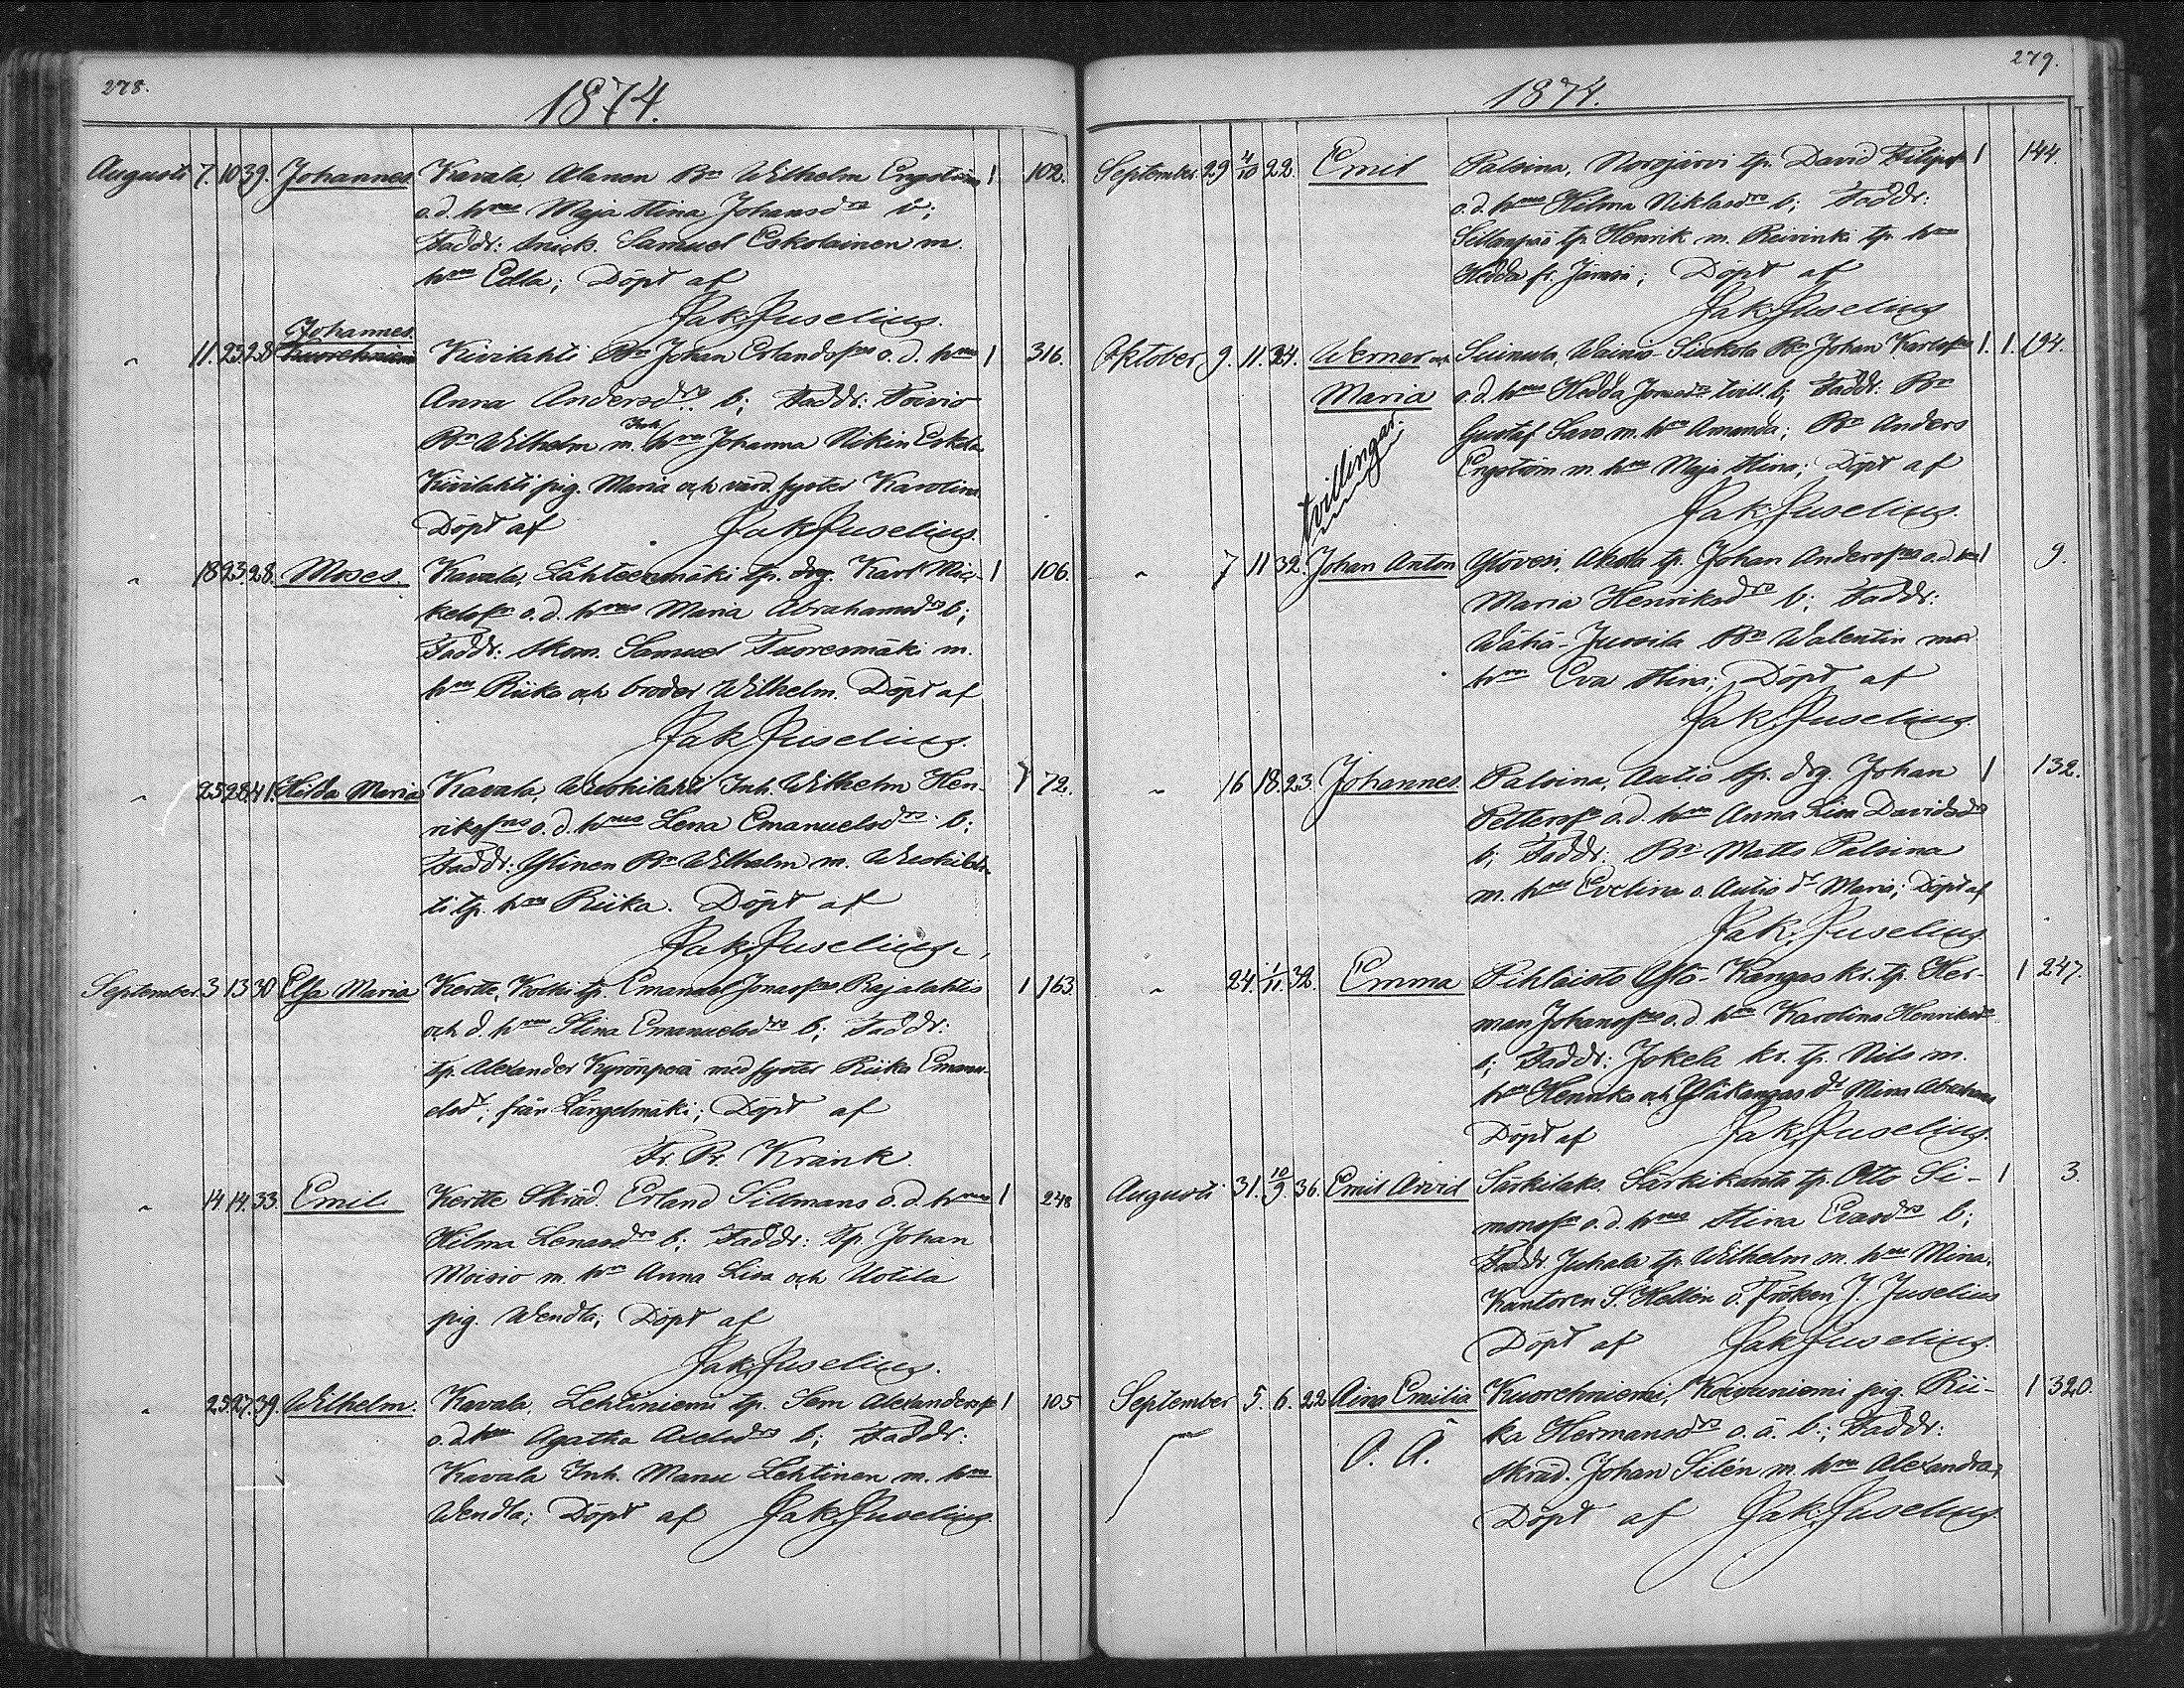 278.
1874.
Augusti 7. 10 39. Johannes. Kavala, Alanen Bn Wilhelm Engström 1 102.
o. d. hus Maja Stina Johansdrs b;
Faddr: Snick. Samuel Eskolainen m.
hu Edla; Döpt af
Jak. Juselius.
Johannes.
" 11. 23. 28 Kivilahti Bn Johan Erlandss o. d. hus 1 316.
Anna Andersdrs b; Faddr: Toivio
Bn Wilhelm m. hu Johanna Eskola
Kivilahti pig. Maria och värd. syster Karolina
Döpt af Jak Juselius.
" 18 23. 28. Moses. Kavala, Lähteenmäki tp. drg. Karl Mic- 1 106.
kelss o. d. hus Maria Abrahamsdrs b;
Faddr: Skom. Samuel Tuoresmäki m.
hu Riika och broder Wilhelm. Döpt af
Jak Juselius.
" 25 28 41. Hilda Maria Kavala, Wuohilahti Inh. Wilhelm Hen- 1 72.
rikss o. d. hus Lena Emanuelsdrs b;
Faddr: Ylinen Bn Wilhelm m. Wuohilah-
ti tp. hu Riika. Döpt af
Jak. Juselius.
September 3 13 30 Elsa Maria Kertte, Kolki tp. Emanuel Jonass Rajalahtis 1 163.
och d. hus Stina Emanuelsdrs b; Faddr:
tp. Alexander Kyrönperä med syster Riika Emanu-
elsdr; från Längelmäki; Döpt af
Fr. Br. Krank.
" 14. 14. 33. Emil. Kertte Skräd. Erland Sillmans o. d. hus 1 248
Hilma Lenasdrs b; Faddr: Tp. Johan
Moisio m. hu Anna Lisa och Uotila
pig. Wendla; Döpt af
Jak. Juselius.
" 25 27. 39. Wilhelm. Kavala, Lehtiniemi tp. Sam Alexanderss 1 105
o. d. hus Agatha Axelsdrs b; Faddr:
Kavala Inh. Manu Lehtinen m. hu
Wendla; Döpt af Jak. Juselius.
279.
1874.
September. 29 4/10 22. Emil Palsina, Norojärvi tp. David Filips 1 144.
o. d. hus Hilma Niklasdrs b; Faddr:
Sillanpää tp. Henrik m. Reivinki tp. hu
Hedda fr. Jämsä; Döpt af
Jak. Juselius
Oktober 9. 11. 34. Werner och Suinula, Wainio-Siukola Bn Johan Karlss 1. 1. 194.
Maria o. d. hus Hedda Jonasdrs tvill. b; Faddr: Bn
tvillingar. Gustaf Savo m. hu Amanda; Bn Anders
Engström m. hu Maja Stina; Döpt af
Jak. Juselius.
" 7 11 32. Johan Anton Ylövesi, Akola tp. Johan Anderss o. d. hus 1 9.
Maria Henriksdrs b; Faddr:
Wähä-Jussila Bn Walentin med
hu Eva Stina; Döpt af
Jak. Juselius.
" 16 18. 23. Johannes. Palsina, Autio tp. drg. Johan 1 132.
Petterss o. d. hus Anna Lisa Davidsdrs
b; Faddr: Bn Matts Palsina
m. hu Evelina o. Autio dr Maria; Döpt af
Jak. Juselius.
" 24. 1/11. 32. Emma Pihlaisto Yló-Kangas kr. tp. Her- 1 247.
man Johanss o. d. hus Karolina Henriksdrs
b; Faddr: Jokela kr. tp. Nils m.
hu Henrika och Yläkangas dr Mina Abrahams
Döpt af Jak. Juselius.
Augusti 31. 10/9 36. Emil Arvid Särkilaks. Särkikanta tp. Otto Si- 1 3.
monss o. d. hus Stina Evasdrs b;
Faddr. Juhala tp. Wilhelm m. hu Mina,
Kantoren S. Hellén o. Fröken J. Juselius
Döpt af Jak. Juselius.
September 5. 6. 22 Aina Emilia Kuorehniemi, Koivuniemi pig. Rii- 1 320.
O. Ä. ka Hermansdrs o. ä. b.; Faddr:
Skräd. Johan Silén m. hu Alexandra,
Döpt af Jak. Juselius.